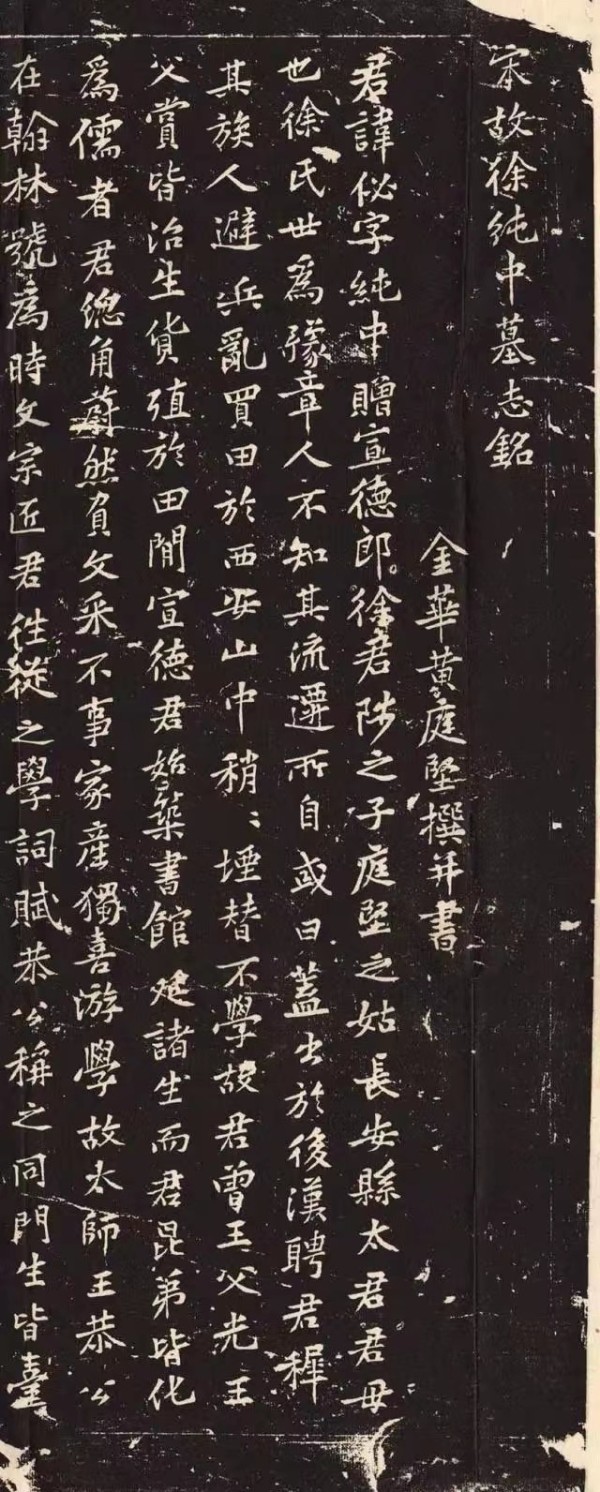 宋故徐純中墓志銘
金華黃庭堅撰并書
君諱佖字純中贈宣德郎徐君陟之子庭堅之姑長安縣太君君母
也徐氏世爲豫章人不知其流遷所自或曰蓋出於後漢聘君穉
其族人避兵亂買田於西安山中稍〻堙替不學故君曾王父光王
父賞皆治生貨殖於田閒宣德君始築書館延諸生而君昆弟皆化
爲儒者君緫角蔚然負文采不事家產獨喜游學故太師王恭公
在翰林號爲時文宗匠君徃從之學詞賦恭公稱之同門生皆臺